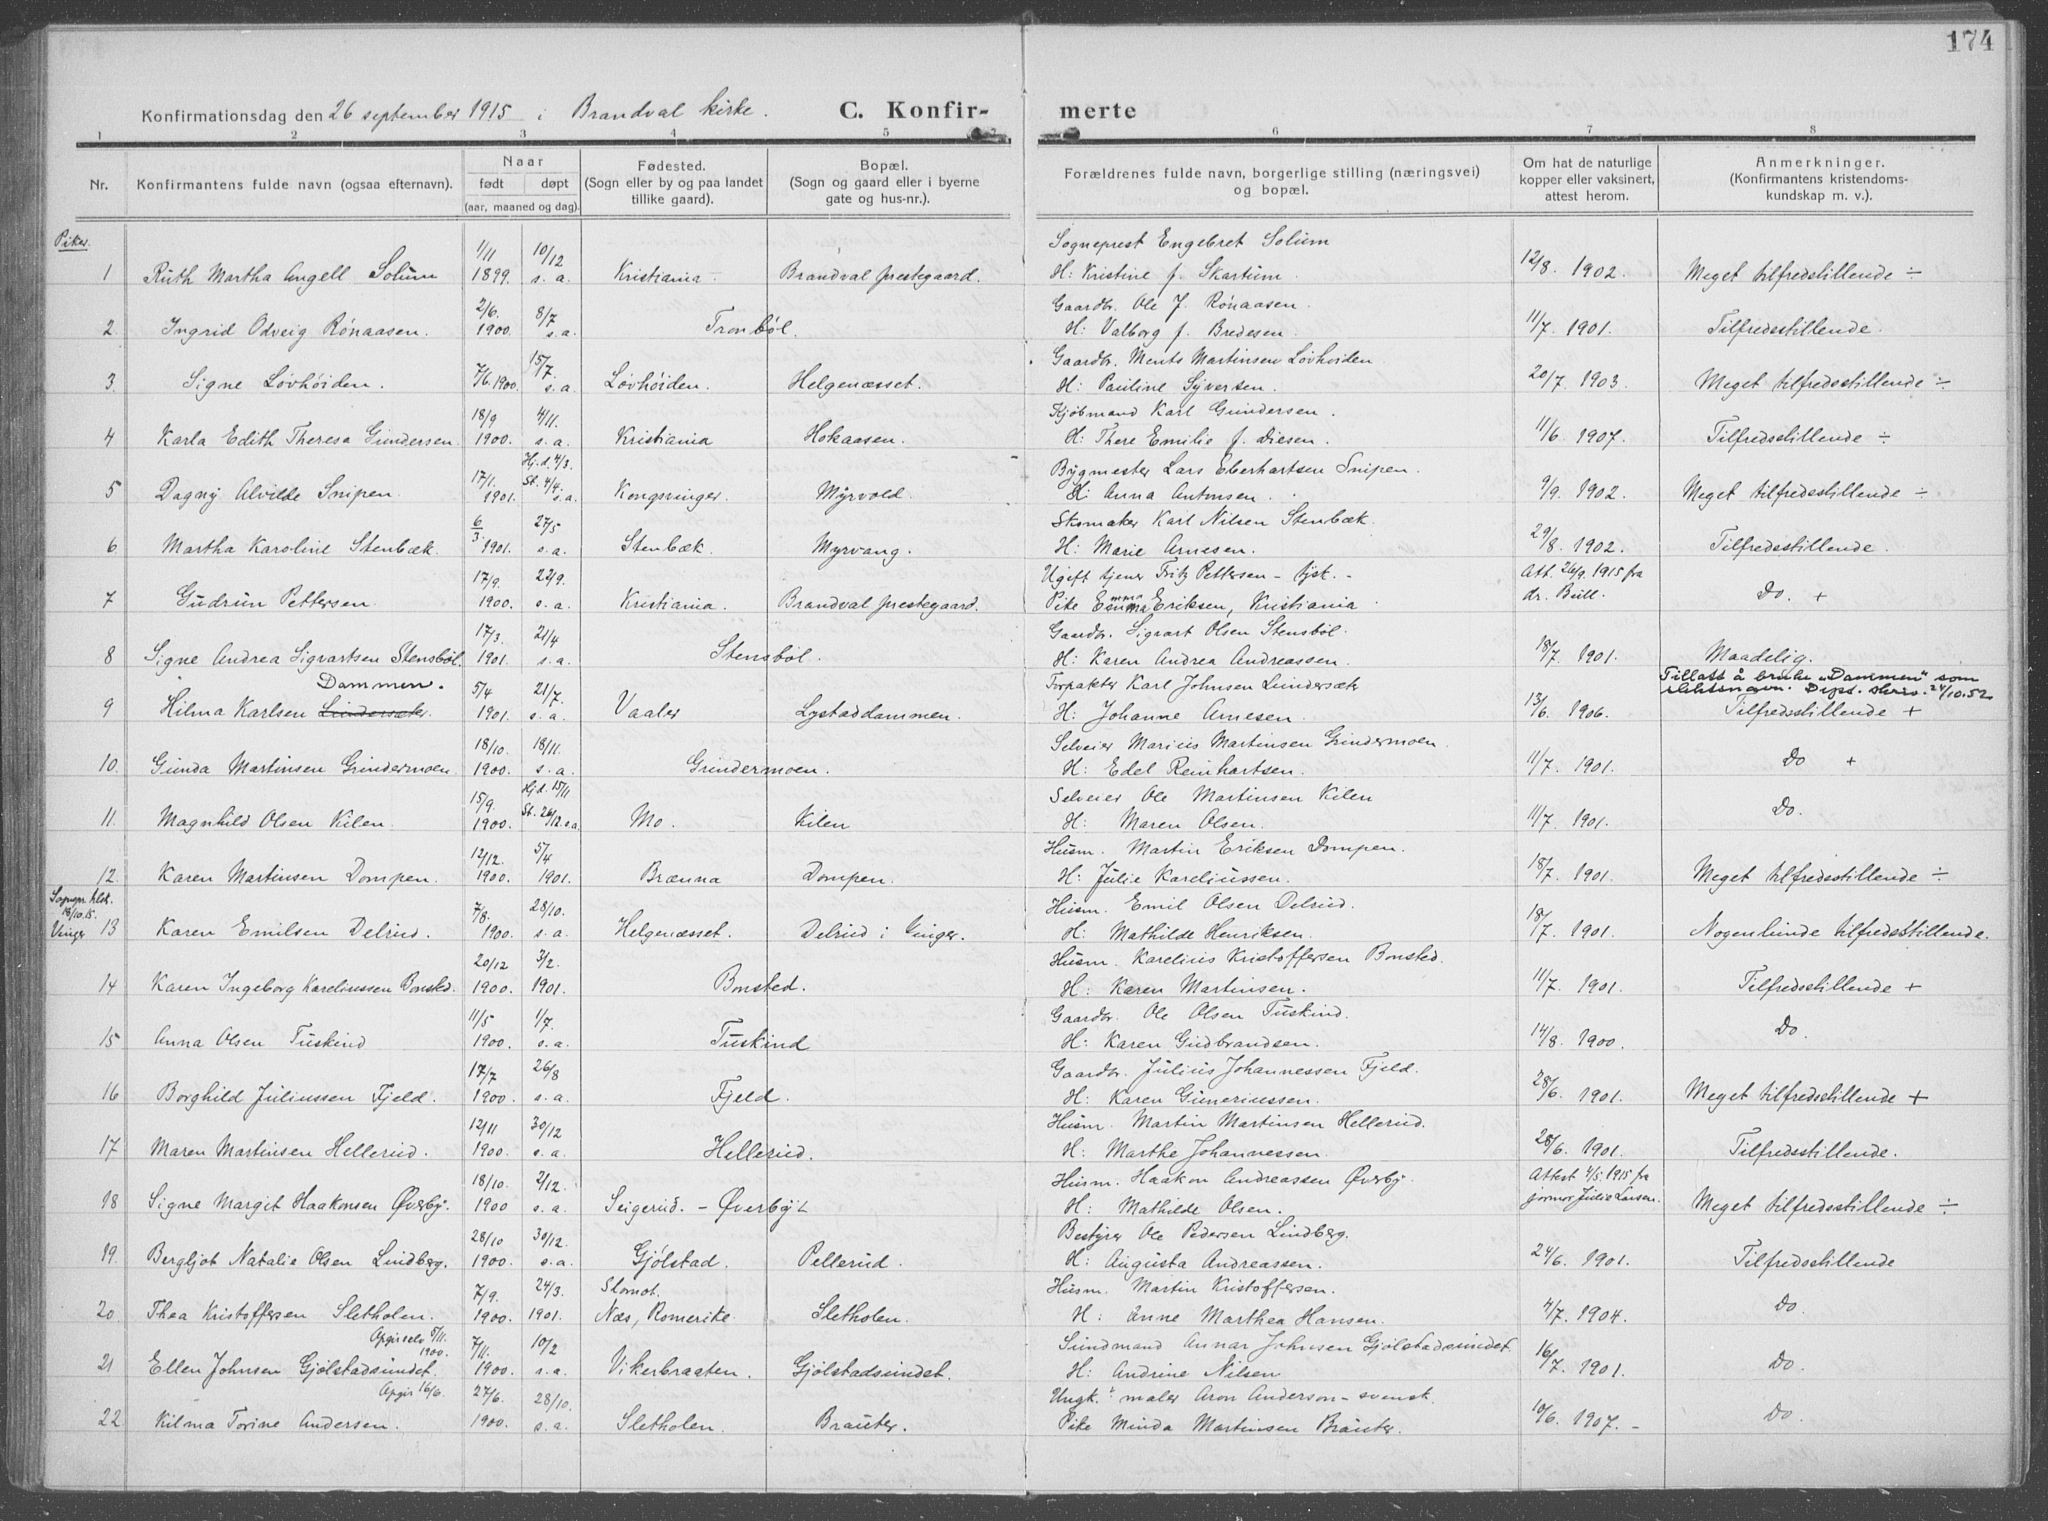 174
Konfirmationsdag den 26 september 1915 i Brandval kirke. C. Konfirmerte
1 2 3 4 5 6 7 8
Nr. Konfirmantens fulde navn (ogsaa efternavn). Naar født døpt (aar, maaned og dag). Fødested. (Sogn eller by og paa landet tillike gaard). Bopæl. (Sogn og gaard eller i byerne gate og hus-nr.). Forældrenes fulde navn, borgerlige stilling (næringsvei) og bopæl. Om hat de naturlige kopper eller vaksinert, attest herom. Anmerkninger. (Konfirmantens kristendomskundskap m. v.).
Piker.
1/11 10/12 Sogneprest Engebret Solum
1 Ruth Martha Angell Solum 1899. s. a. Kristiania Brandval prestegaard. H: Kristine f. Skartum. 12/8. 1902. Meget tilfredsstillende ÷
2/6. 8/7 Gaardbr. Ole J. Rønaasen.
2. Ingrid Odveig Rønaasen. 1900. s. a. Tronbøl. H: Valborg f. Bredesen. 11/7. 1901. Tilfredsstillende.
15/7. Gaardbr. Ments Martinsen Løvhøiden
3. Signe Løvhøiden. 7/6. 1900. s. a. Løvhøiden. Helgenæsset. H: Pauline Syversen. 20/7. 1903. Meget tilfredsstillende ÷
18/9 4/11. Kjøbmand Karl Gundersen.
4 Karla Edith Theresa Gundersen. 1900. s. a. Kristiania Hokaasen. H: There Emilie f. Diesen. 11/6. 1907. Tilfredsstillende ÷
17/1. Hj. d. 4/3. St. 4/4 Bygmester Lars Eberhartsen Snipen.
5 Dagny Alvilde Snipen. 1901. s. a. Kongsvinger Myrvold. H: Anna Antonsen. 9/9. 1902. Meget tilfredsstillende ÷
6/3 27/5 Skomaker Karl Nilsen Stenbæk.
6. Martha Karoline Stenbæk. 1901. s. a. Stenbæk. Myrvang. H: Marie Arnesen. 29/8. 1902. Tilfredsstillende.
17/9. 22/9. Ugift tjener Fritz Pettersen – tysk. – Att. 26/9. 1915 fra
7 Gudrun Pettersen. 1900. s. a. Kristiania. Brandval prestegaard. Pike Emma Eriksen, Kristiania. dr. Bull. Do. +
17/3. 21/4 Gaardbr. Sigvart Olsen Stensbøl.
8 Signe Andrea Sigvartsen Stensbøl. 1901. s. a. Stensbøl. H: Karen Andrea Andreassen. 18/7. 1901. Maadelig.
Dammen. 5/4 21/7. Forpakter Karl Johnsen Lundersæter Tillatt å bruke „Dammen" som slektsnavn. Dept. skriv. 24/10.52
9 Hilma Karlsen Lundersæter. 1901. s. a. Vaaler Lystaddammen. H: Johanne Arnesen. 13/6. 1906. Tilfredsstillende +
18/10. 18/11. Selveier Marius Martinsen Grindermoen.
10. Gunda Martinsen Grindermoen. 1900. s. a. Grindermoen. H: Edel Reinhartsen. 11/7. 1901. Do +
15/9. Hj. d. 15/11 St. 26/12. s.a. Selveier Ole Martinsen Kilen
11. Magnhild Olsen Kilen. 1900. Mo. Kilen H: Maren Olsen. 11/7. 1901. Do.
12/12. 5/4 Husm. Martin Eriksen Dompen.
12. Karen Martinsen Dompen. 1900. 1901. Brænna Dompen. H: Julie Kareliussen. 18/7. 1901. Meget tilfredsstillende ÷
18/10.15. 7/8. 28/10. Husm. Emil Olsen Delrud.
Vinger 13 Karen Emilsen Delrud. 1900. s. a. Helgenæsset. Delrud i Vinger. H: Mathilde Henriksen. 18/7. 1901. Nogenlunde tilfredsstillende.
20/12 3/2. Husm. Karelius Kristoffersen Bonsted.
14 Karen Ingeborg Kareliussen Bonsted. 1900. 1901. Bonsted. H: Karen Martinsen. 11/7. 1901. Tilfredsstillende +
11/5 1/7. Gaardbr. Ole Olsen Tuskind.
15 Anna Olsen Tuskind 1900. s. a. Tuskind H: Karen Gudbrandsen. 14/8. 1900. Do.
17/7 26/8 Gaardbr. Julius Johannessen Fjeld.
16 Borghild Juliussen Fjeld. 1900. s. a. Fjeld. H: Karen Guneriussen. 28/6. 1901. Meget tilfredsstillende +
12/11 30/12 Husm. Martin Martinsen Hellerud.
17 Maren Martinsen Hellerud. 1900. s. a. Hellerud. H: Marthe Johannessen. 28/6. 1901. Tilfredsstillende.
18/10. 2/12. Husm. Haakon Andreassen Øverby. Attest 4/5. 1915 fra
18 Signe Margit Haakonsen Øverby. 1900 s. a. Seigerud. – Øverby H: Mathilde Olsen. jormor Julie Larsen. Meget tilfredsstillende ÷
28/10 30/12. Bestyrer Ole Pedersen Lindberg.
19. Bergljot Natalie Olsen Lindberg. 1900. s. a. Gjølstad. Pellerud. H: Augusta Andreassen. 24/6. 1901. Tilfredsstillende
7/9. 24/3. Slomot. Husm. Martin Kristoffersen.
20. Thea Kristoffersen Sletholen. 1900. 1901. Næs, Romerike. Sletholen. H: Anne Marthea Hansen. 4/7. 1904. Do.
Opgir selv 8/11. 1900. 7/11. 10/2 Sundmand Annar Johnsen Gjølstadsundet.
21 Ellen Johnsen Gjølstadsundet. 1900. s. a. Vikerbraaten. Gjølstadsundet. H: Andrine Nilsen 16/7. 1901. Do.
Opgir 16/6. 27/6. 28/10. Ungk. maler Aron Anderson – svensk.
22. Kilma Torine Andersen. 1900. s. a. Sletholen. Brauter. Pike Minda Martinsen Brauter. 10/6. 1907. – Do.